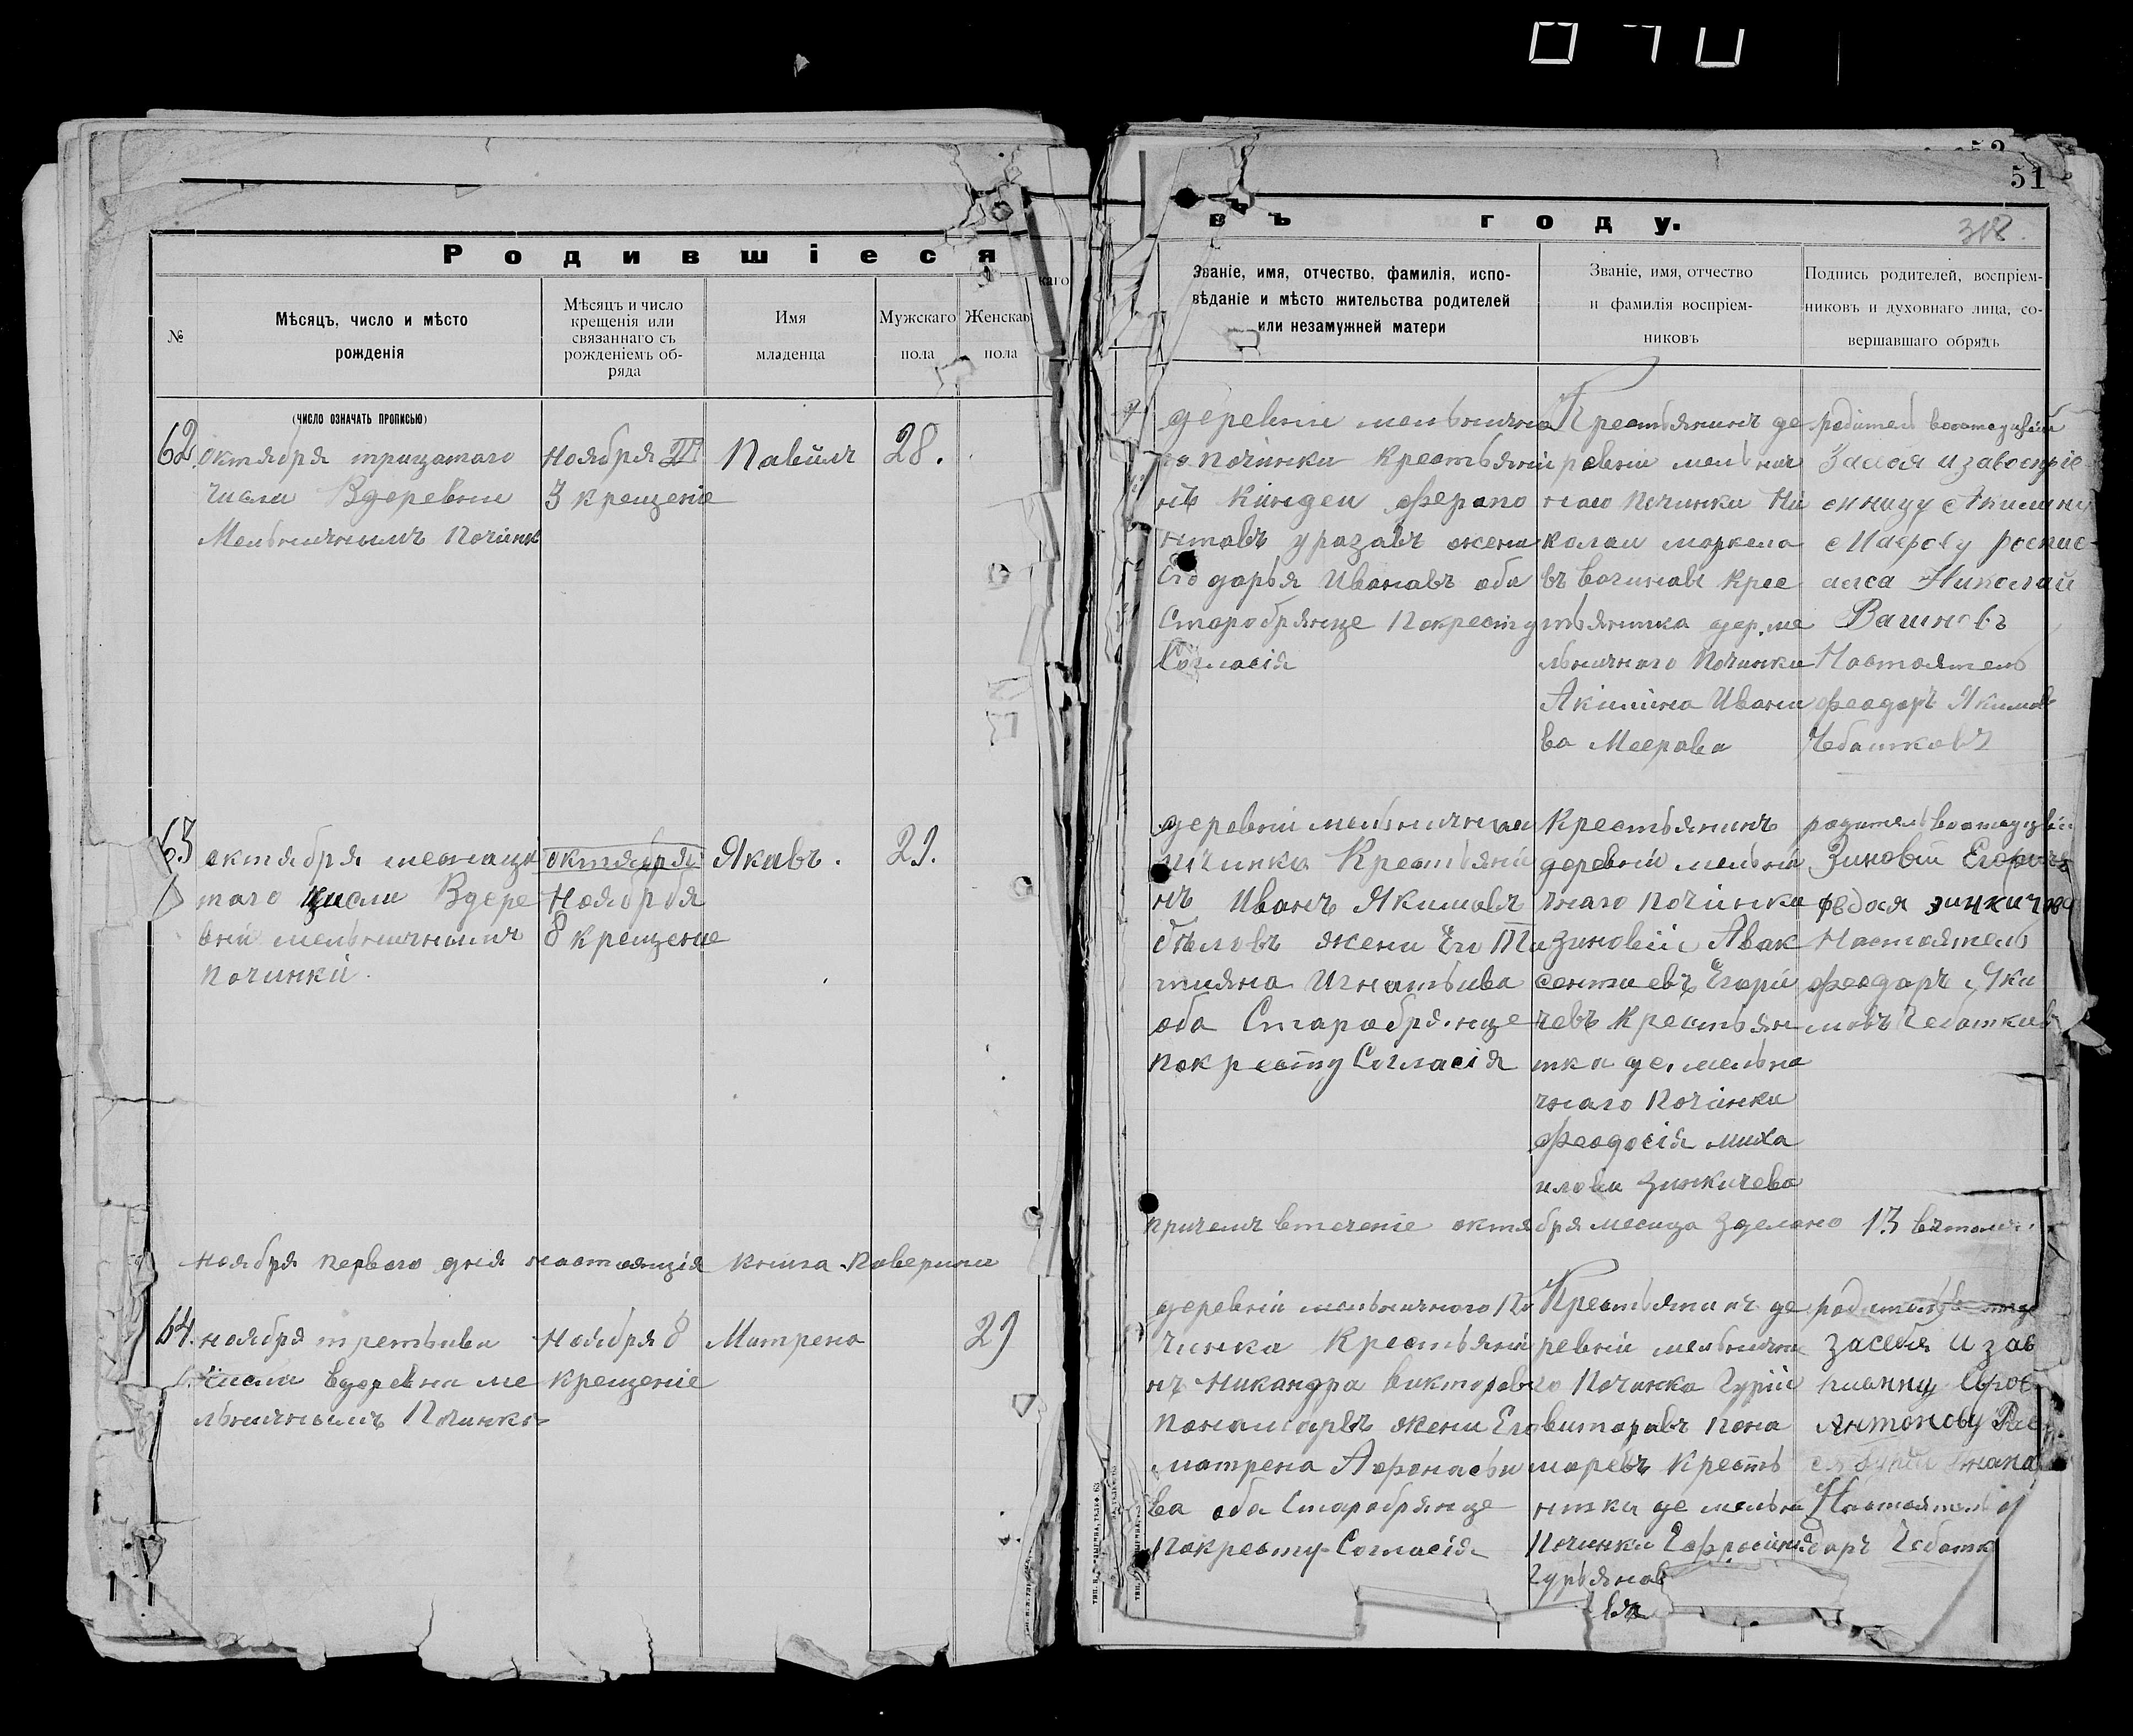 52
51
318.
Родившіеся
въ году.
№
Мѣсяцъ, число и мѣсто
рожденія
Мѣсяцъ и число
крещенія или
связаннаго съ
рожденіемъ об-
ряда
Имя
младенца
Мужскаго
пола
Женскаго
пола
каго
Званіе, имя, отчество, фамилія, испо-
вѣданіе и мѣсто жительства родителей
или незамужней матери
Званіе, имя, отчество
и фамилія воспріем-
никовъ
Подпись родителей, воспріем-
никовъ и духовнаго лица, со-
вершавшаго обрядъ
(число означать прописью)
62.
октября трицатаго
числа Вдеревни
Мельничнымъ Починк
Ноября
3 крещеніе
Павилъ
28.
деревніи мельнично
го починки Крестьяни
нъ Киндеи Ферапо
нтовъ уразавъ жена
Его дарья Ивановъ оба
Старобрянце Покресту
Согласія
Крестьянинъ де
ревніи мельнич
наго Починки Ни
колаи маркело
въ вагинавъ Крес
тьянтка дер. ме
льничнаго Починки
Акилина Ивани
ва Меерава
родитель
Засебя изавоспріе
енницу Акилину
Маерову роспис
алса Николай
Вагиновъ
Настоятель
Феодоръ Якимов
Чебатковъ
63
октября месяца
таго числи Вдере
вни мельничнымъ
Починкі.
октября
Ноябрбя
8 крещение
Якавъ.
29.
деревніи мельничнаи
пичинка Крестьяни
нъ Иванъ Якимовъ
бѣловъ жена Его Та
тияна Игнатьива
оба Старобрянце
покресту Согласія
Крестьянинъ
деревніи мельни
чнаго починка
зиновіи Авак
сентиевъ Егори
чевъ Крестьян
тка де. мельни
чнаго Починки
Феодосія миха
илови Зинкичева
родитель
Зиновіи Егоричев
Федося зинкичева
Настоятель
Феодоръ Яки
мовъ Чебатков
причемъ втеченіе октября месица зделано 13
ноября первого дня настоящія книга Поверини
64.
ноября третьива
числа вдеревни ме
льничнымъ Починки
Ноября 8
крещеніе
Матрена
29
деревніи мельничного По
чинка Крестьяни
нъ Никандра Викторовъ
Понамаревъ жена Его
матрена Афонасьи
ва оба Старобрянце
Покресту Согласія
Крестьянинъ де
ревніи мельнични
го Починка Гурій
виторавъ Пона
моревъ Кресть
нтка де мельн
Починка Ефросиня
Гурьянов
ва
родитель
Засебя и зав
Антонову Рас
Настоятель
доръ Чебатк